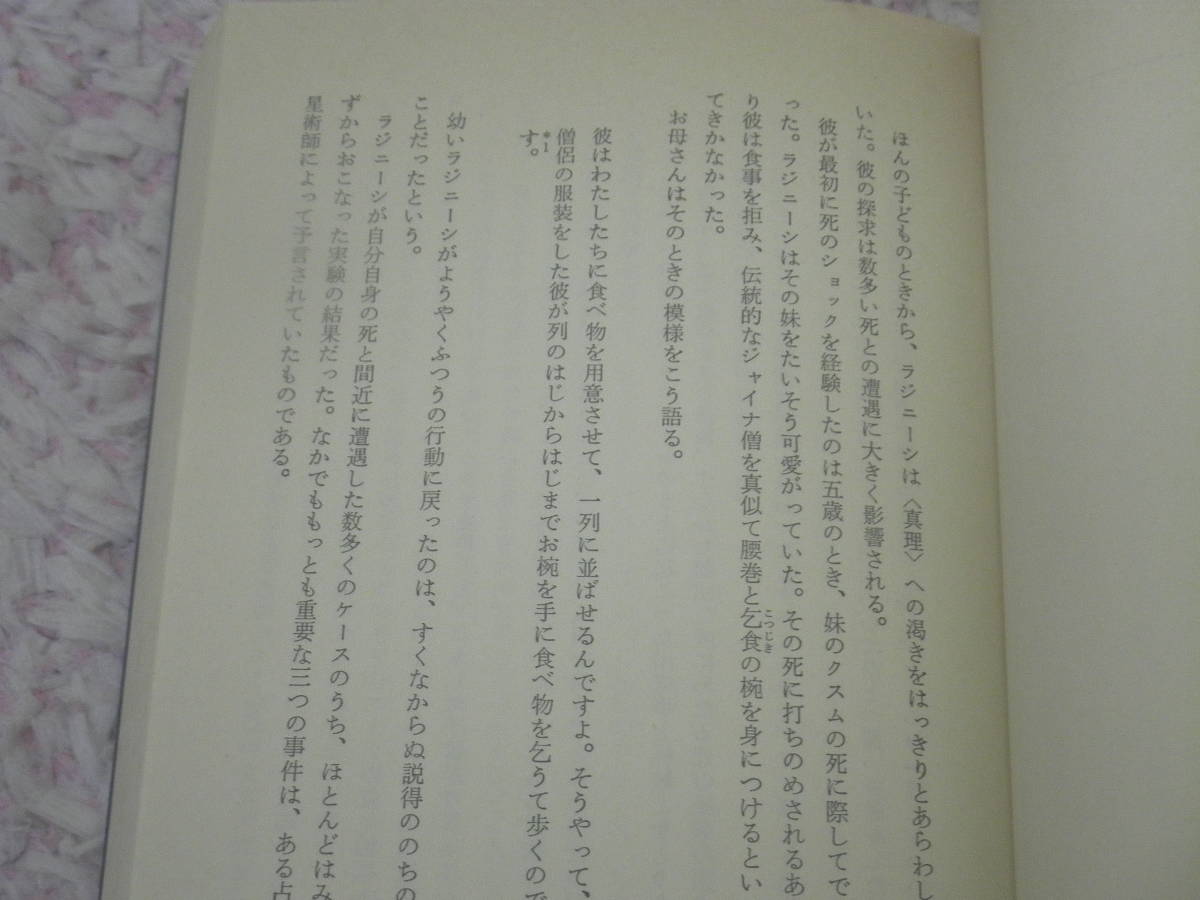 ほんの子どものときから、ラジニーシは〈真理〉への渇きをはっきりとあらわし
いた。彼の探求は数多い死との遭遇に大きく影響される。
彼が最初に死のショックを経験したのは五歳のとき、妹のクスムの死に際してで
った。ラジニーシはその妹をたいそう可愛がっていた。その死に打ちのめされるあ
り彼は食事を拒み、伝統的なジャイナ僧を真似て腰巻と乞食の椀を身につけるとい
こつじき
てきかなかった。
お母さんはそのときの模様をこう語る。
彼はわたしたちに食べ物を用意させて、一列に並ばせるんですよ。そうやって、
僧侶の服装をした彼が列のはじからはじまでお椀を手に食べ物を乞うて歩くので
す。*1
幼いラジニーシがようやくふつうの行動に戻ったのは、すくなからぬ説得ののちの
ことだったという。
ラジニーシが自分自身の死と間近に遭遇した数多くのケースのうち、ほとんどはみ
ずからおこなった実験の結果だった。なかでももっとも重要な三つの事件は、ある占
星術師によって予言されていたものである。